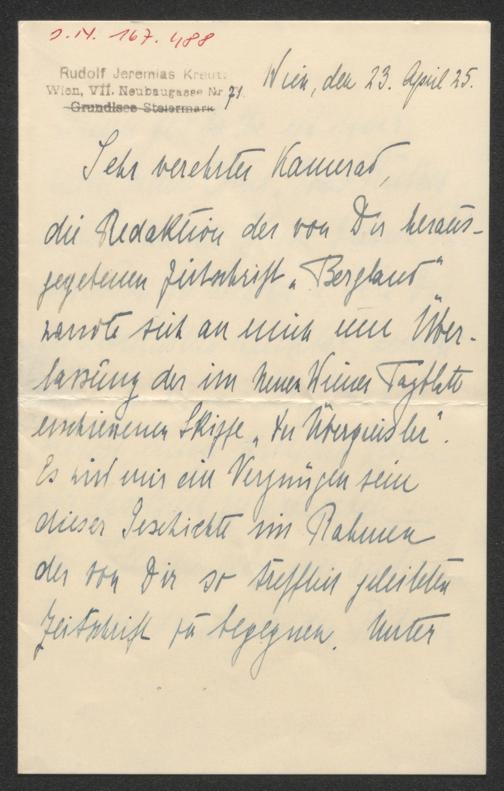 J.N. 167.488
Rudolf Jeremias Kreutz
Wien, VII. Neubaugasse Nr 71.
Grundlsee Steiermark
Wien, den 23. April 25.
Sehr verehrter Kamerad,
die Redaktion der von Dir heraus-
gegebenen Zeitschrift „Bergland"
wandte sich an mich um Über-
lassung der im Neuen Wiener Tagblatt
erschienenen Skizze „Der Übergusler".
Es wird mir ein Vergnügen sein
dieser Geschichte im Rahmen
der von Dir so trefflich geleiteten
Zeitschrift zu begegnen. Unter